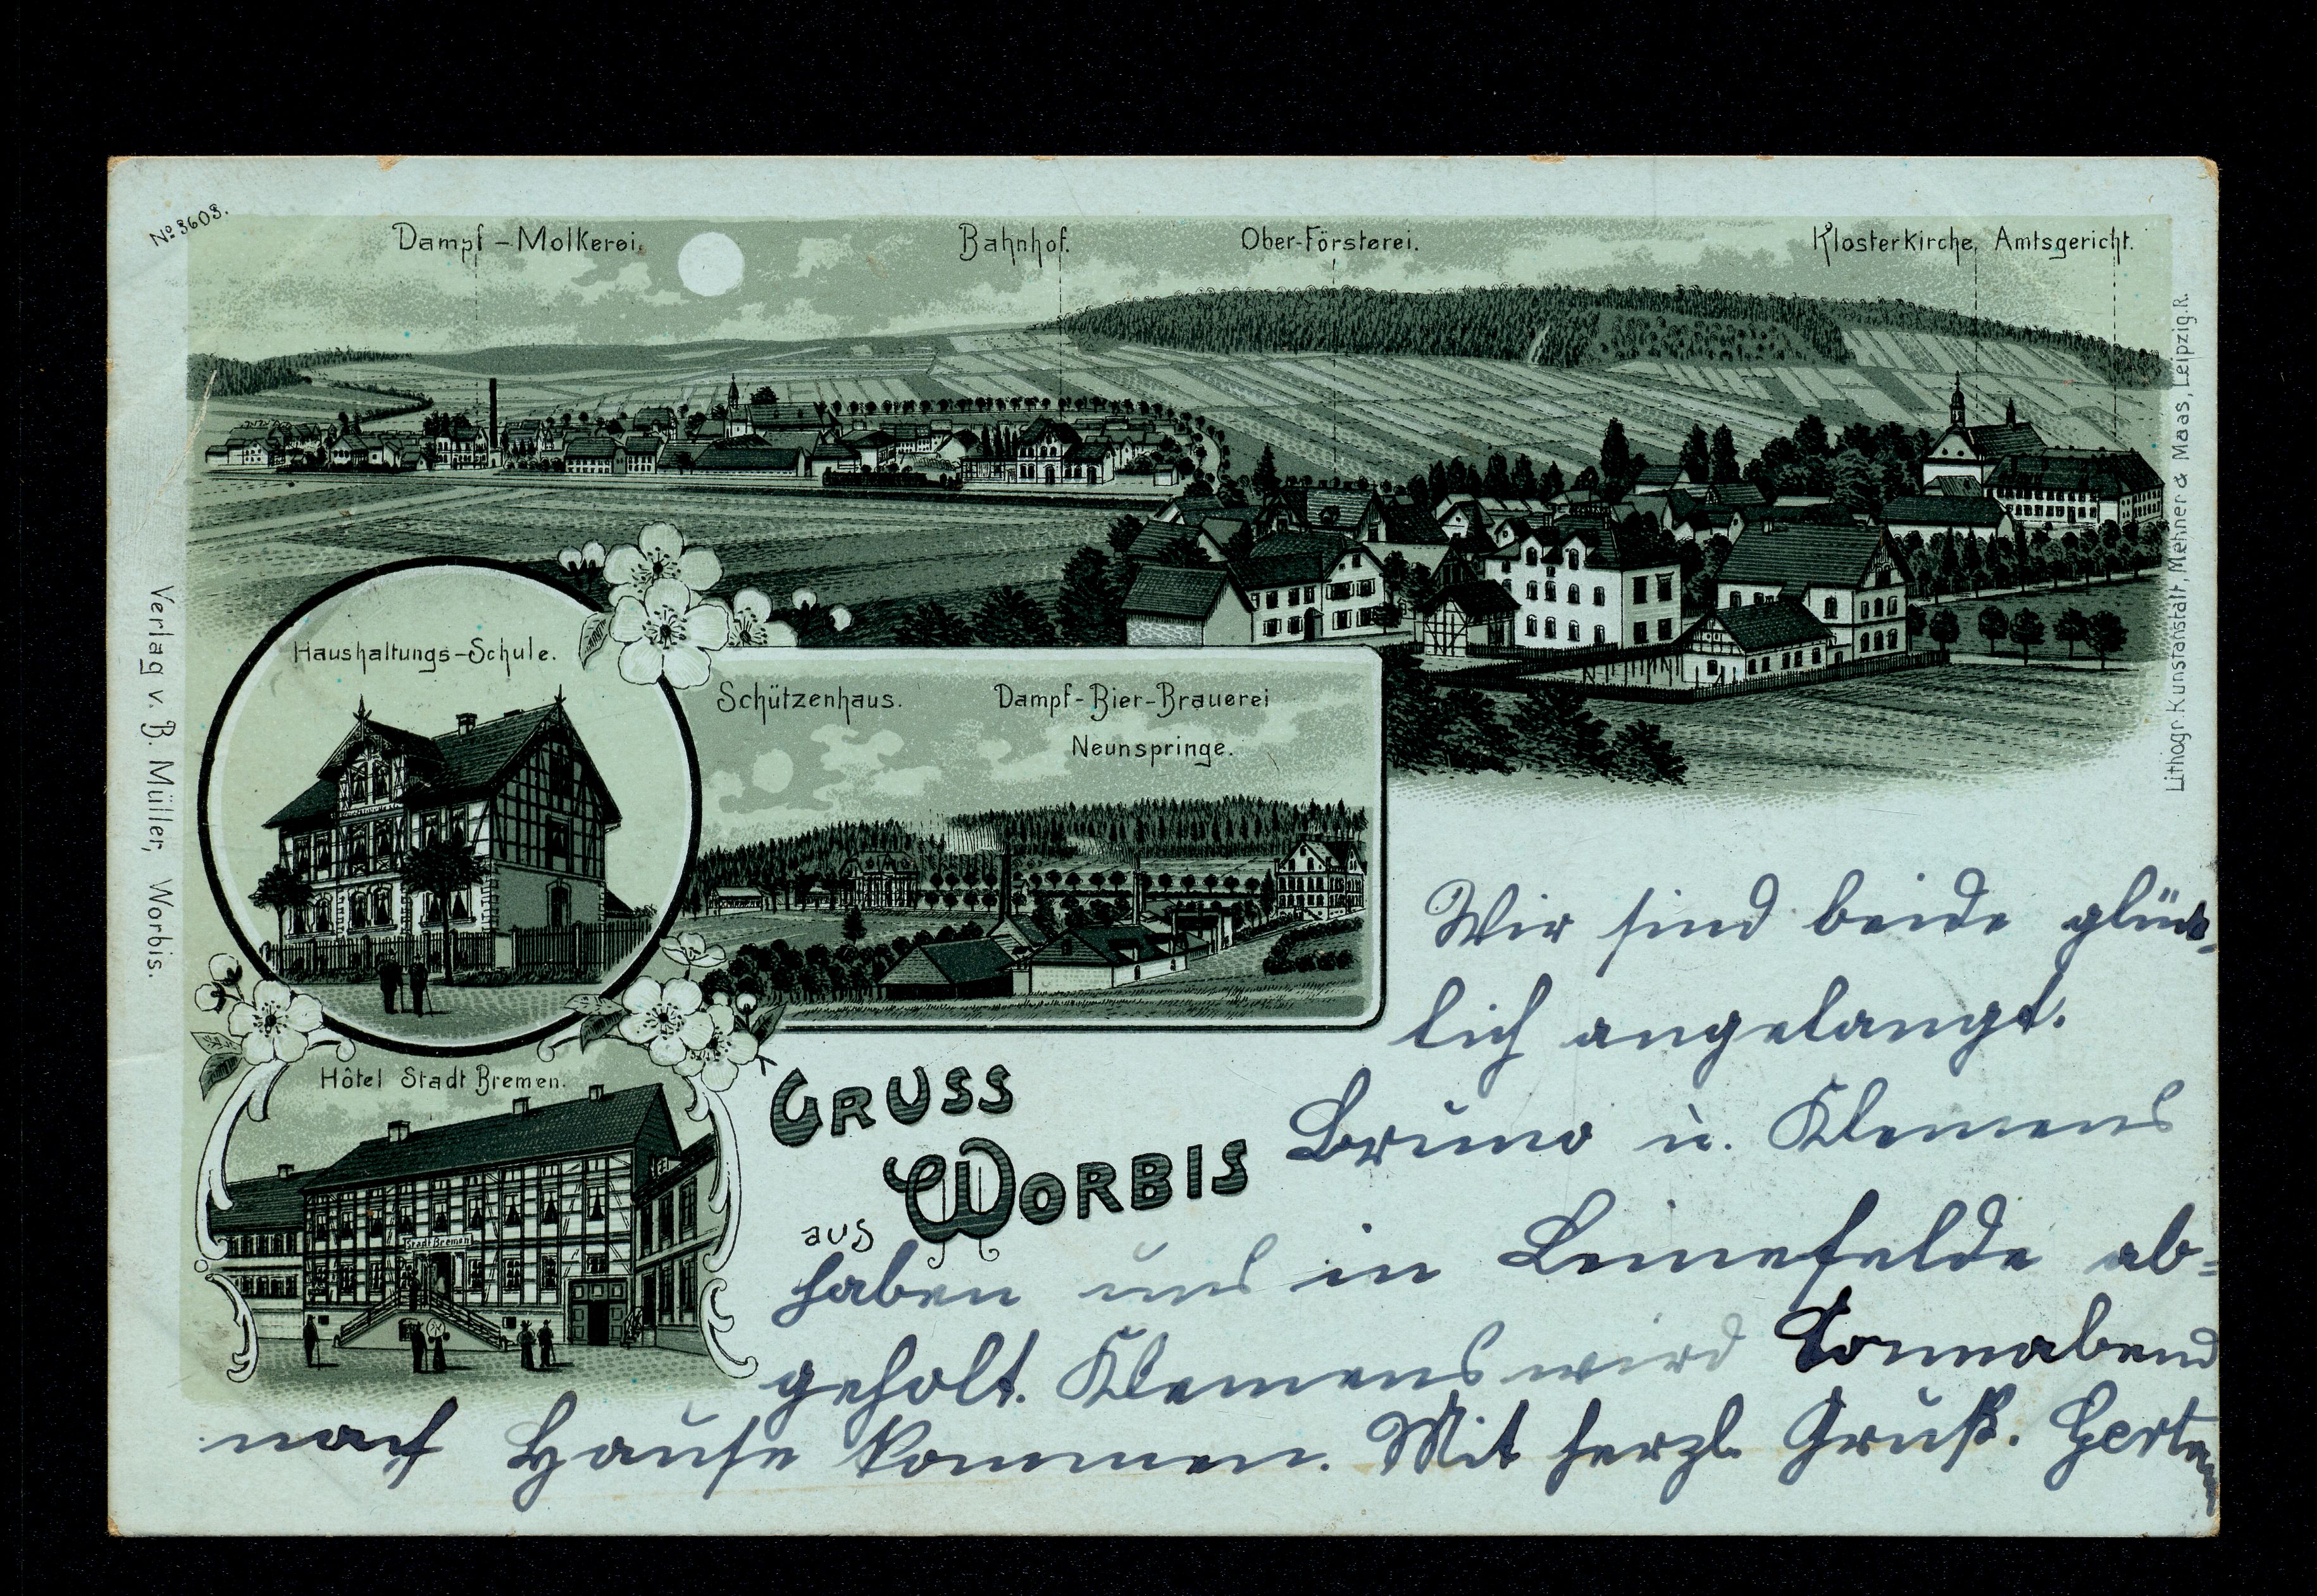 No 3603.
Dampf-Molkerei.
Bahnhof.
Ober-Försterei.
Klosterkirche, Amtsgericht.
Lithogr. Kunstanstalt, Mehner & Maas, Leipzig. R.
Verlag v. B. Müller, Worbis.
Haushaltungs-Schule.
Schützenhaus.
Dampf-Bier-Brauerei
Neunspringe.
Hôtel Stadt Bremen.
Stadt Bremen
GRUSS
aus WORBIS
Wir sind beide glück-
lich angelangt.
Bruno u. Klemens
haben uns in Leinefelde ab=
geholt. Klemens wird Sonnabend
nach Hause kommen. Mit herzl. Gruß.